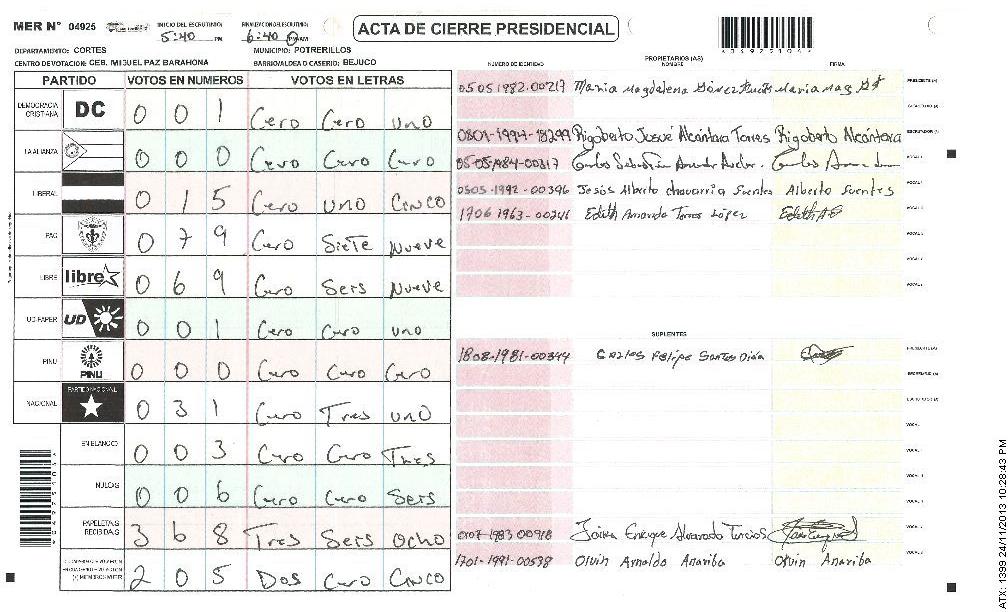 MER N° 04925 INICIO DEL ESCRUTINIO: 5:40 PM FINALIZACION DEL ESCRUTINIO: 6:40 PM
ACTA DE CIERRE PRESIDENCIAL
DEPARTAMENTO: CORTES MUNICIPIO: POTRERILLOS
CENTRO DE VOTACION: CEB. MIGUEL PAZ BARAHONA BARRIO/ALDEA O CASERIO: BEJUCO
PARTIDO VOTOS EN NUMEROS VOTOS EN LETRAS
DEMOCRACIA CRISTIANA DC 0 0 1 Cero Cero uno
LA ALIANZA 0 0 0 Cero Cero Cero
LIBERAL 0 1 5 Cero uno Cinco
PAC 0 7 9 Cero Siete Nueve
LIBRE libre 0 6 9 Cero Seis Nueve
UD-FAPER UD 0 0 1 Cero Cero uno
PINU PINU 0 0 0 Cero Cero Cero
NACIONAL PARTIDO NACIONAL 0 3 1 Cero Tres uno
EN BLANCO 0 0 3 Cero Cero Tres
NULOS 0 0 6 Cero Cero Seis
PAPELETAS RECIBIDAS 3 6 8 Tres Seis Ocho
2 0 5 Dos Cero Cinco
PROPIETARIOS (AS)
NUMERO DE IDENTIDAD NOMBRE FIRMA
0505 1982-00217 Maria Magdalena Maria Mag
0801-1994-18299 Rigoberto Josué Alcántara Torres Rigoberto Alcántara
05-05-1984-00317 Carlos Carlos
0505-1992-00396 Jesús Alberto chavarria fuentes Alberto fuentes
1706 1963-00246 Edith Amanda Torres López Edith
SUPLENTES
1808-1981-00344 Carlos Felipe Santos
0107-1983 00918 Enrique Alvarado
1701-1991-00538 Olvin Arnaldo Anariba Olvin Anariba
ATX: 1399 24/11/2013 10:28:43 PM